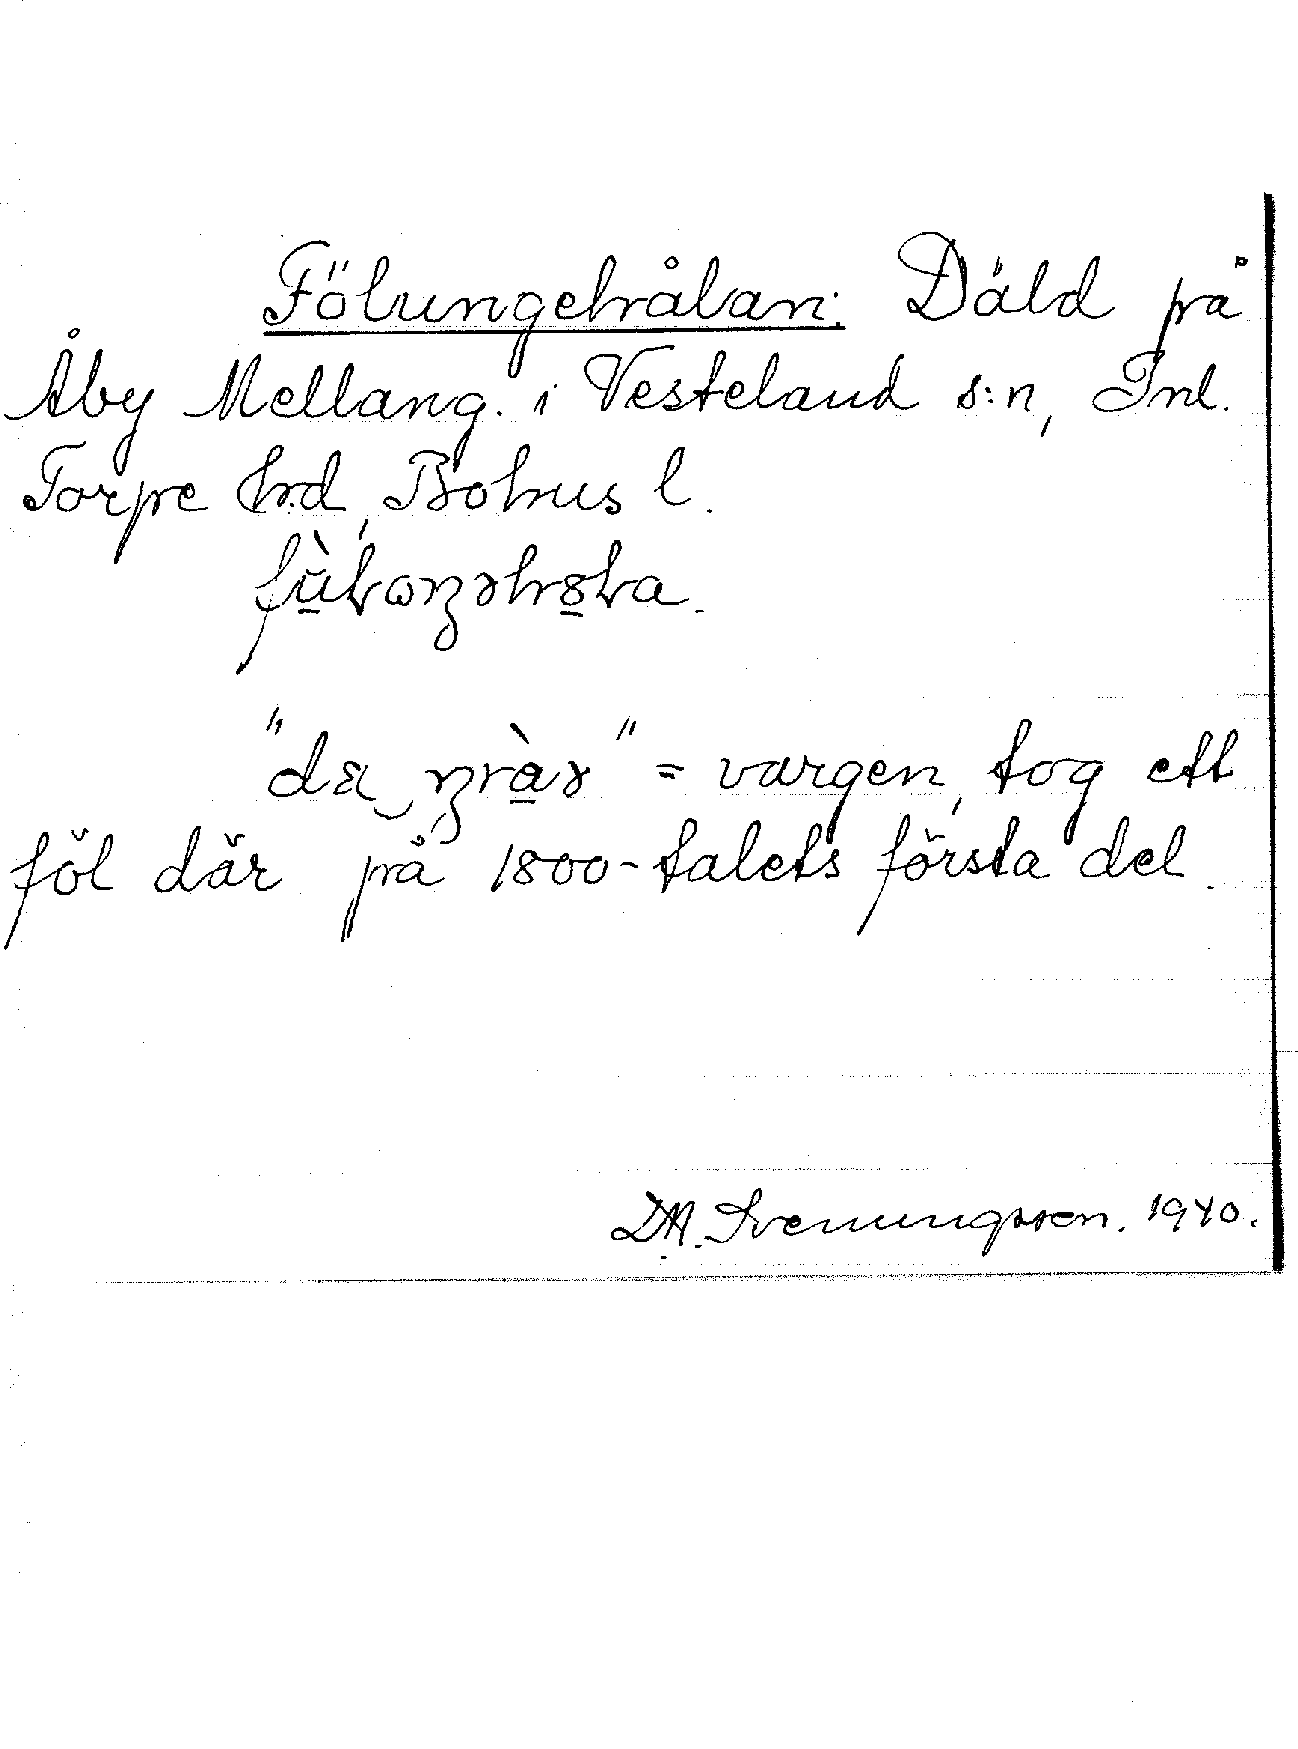 Fölungehålan: Däld på
Åby Mellang. i Vesteland s:n, Inl.
Torpe hrd, Bohus l.
"da gràɤ" = vargen, tog ett
föl där på 1800-talets första del.
D.A. Svenungsson. 1940.